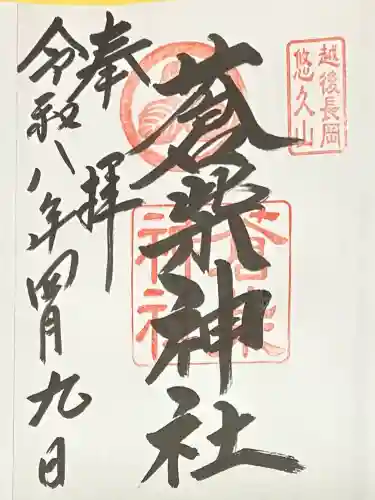 越後長岡
悠久山
蒼柴神社
蒼柴
神社
奉拝
令和八年四月九日